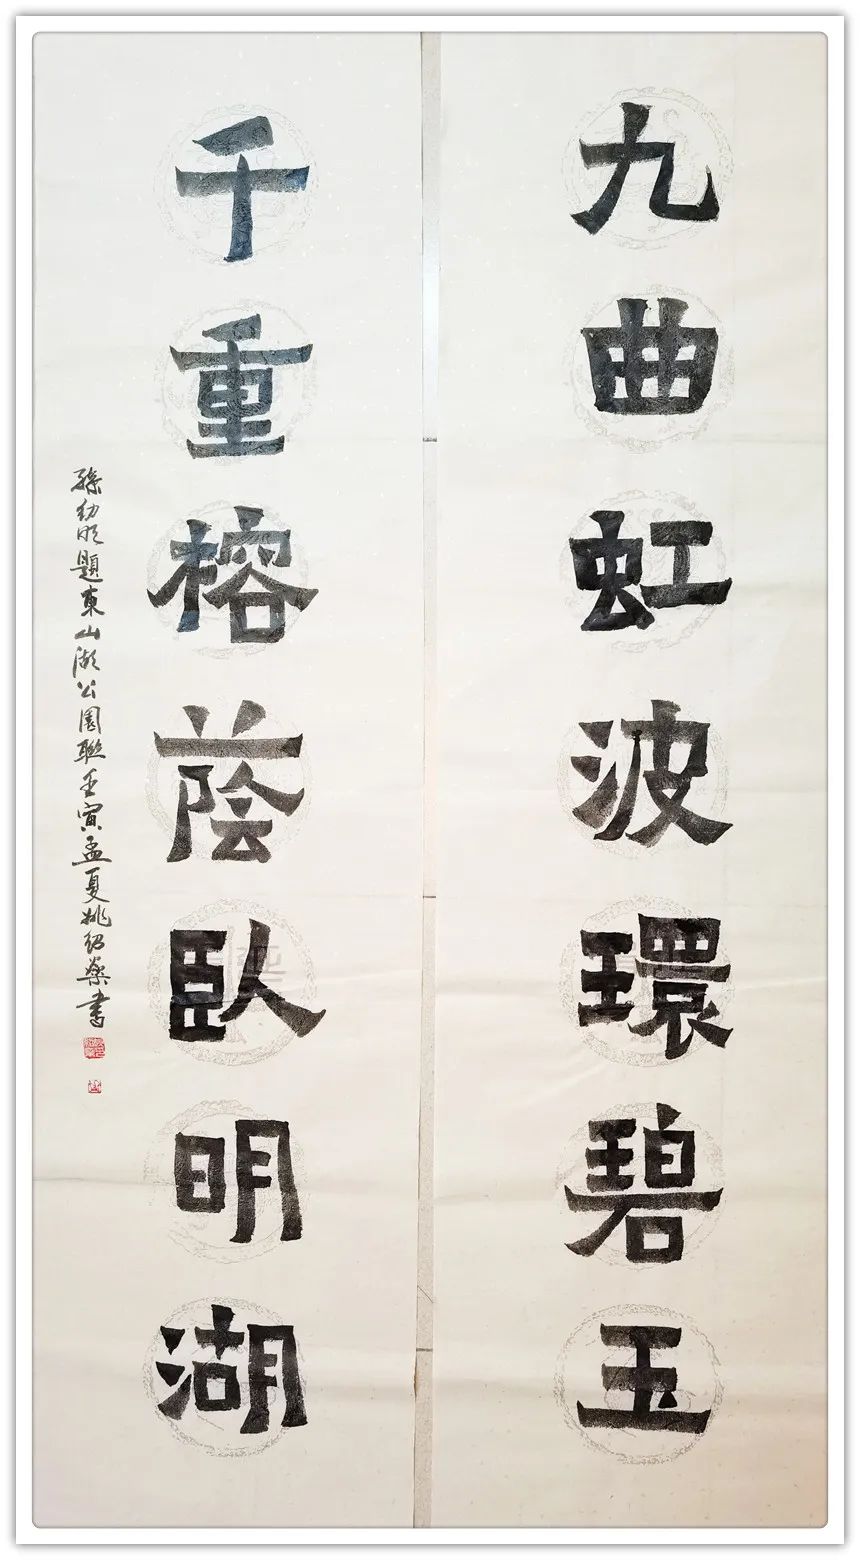 九曲虹波環碧玉
千重榕蔭臥明湖
孫幼明題東山湖公園聯壬寅孟夏姚紹燊書